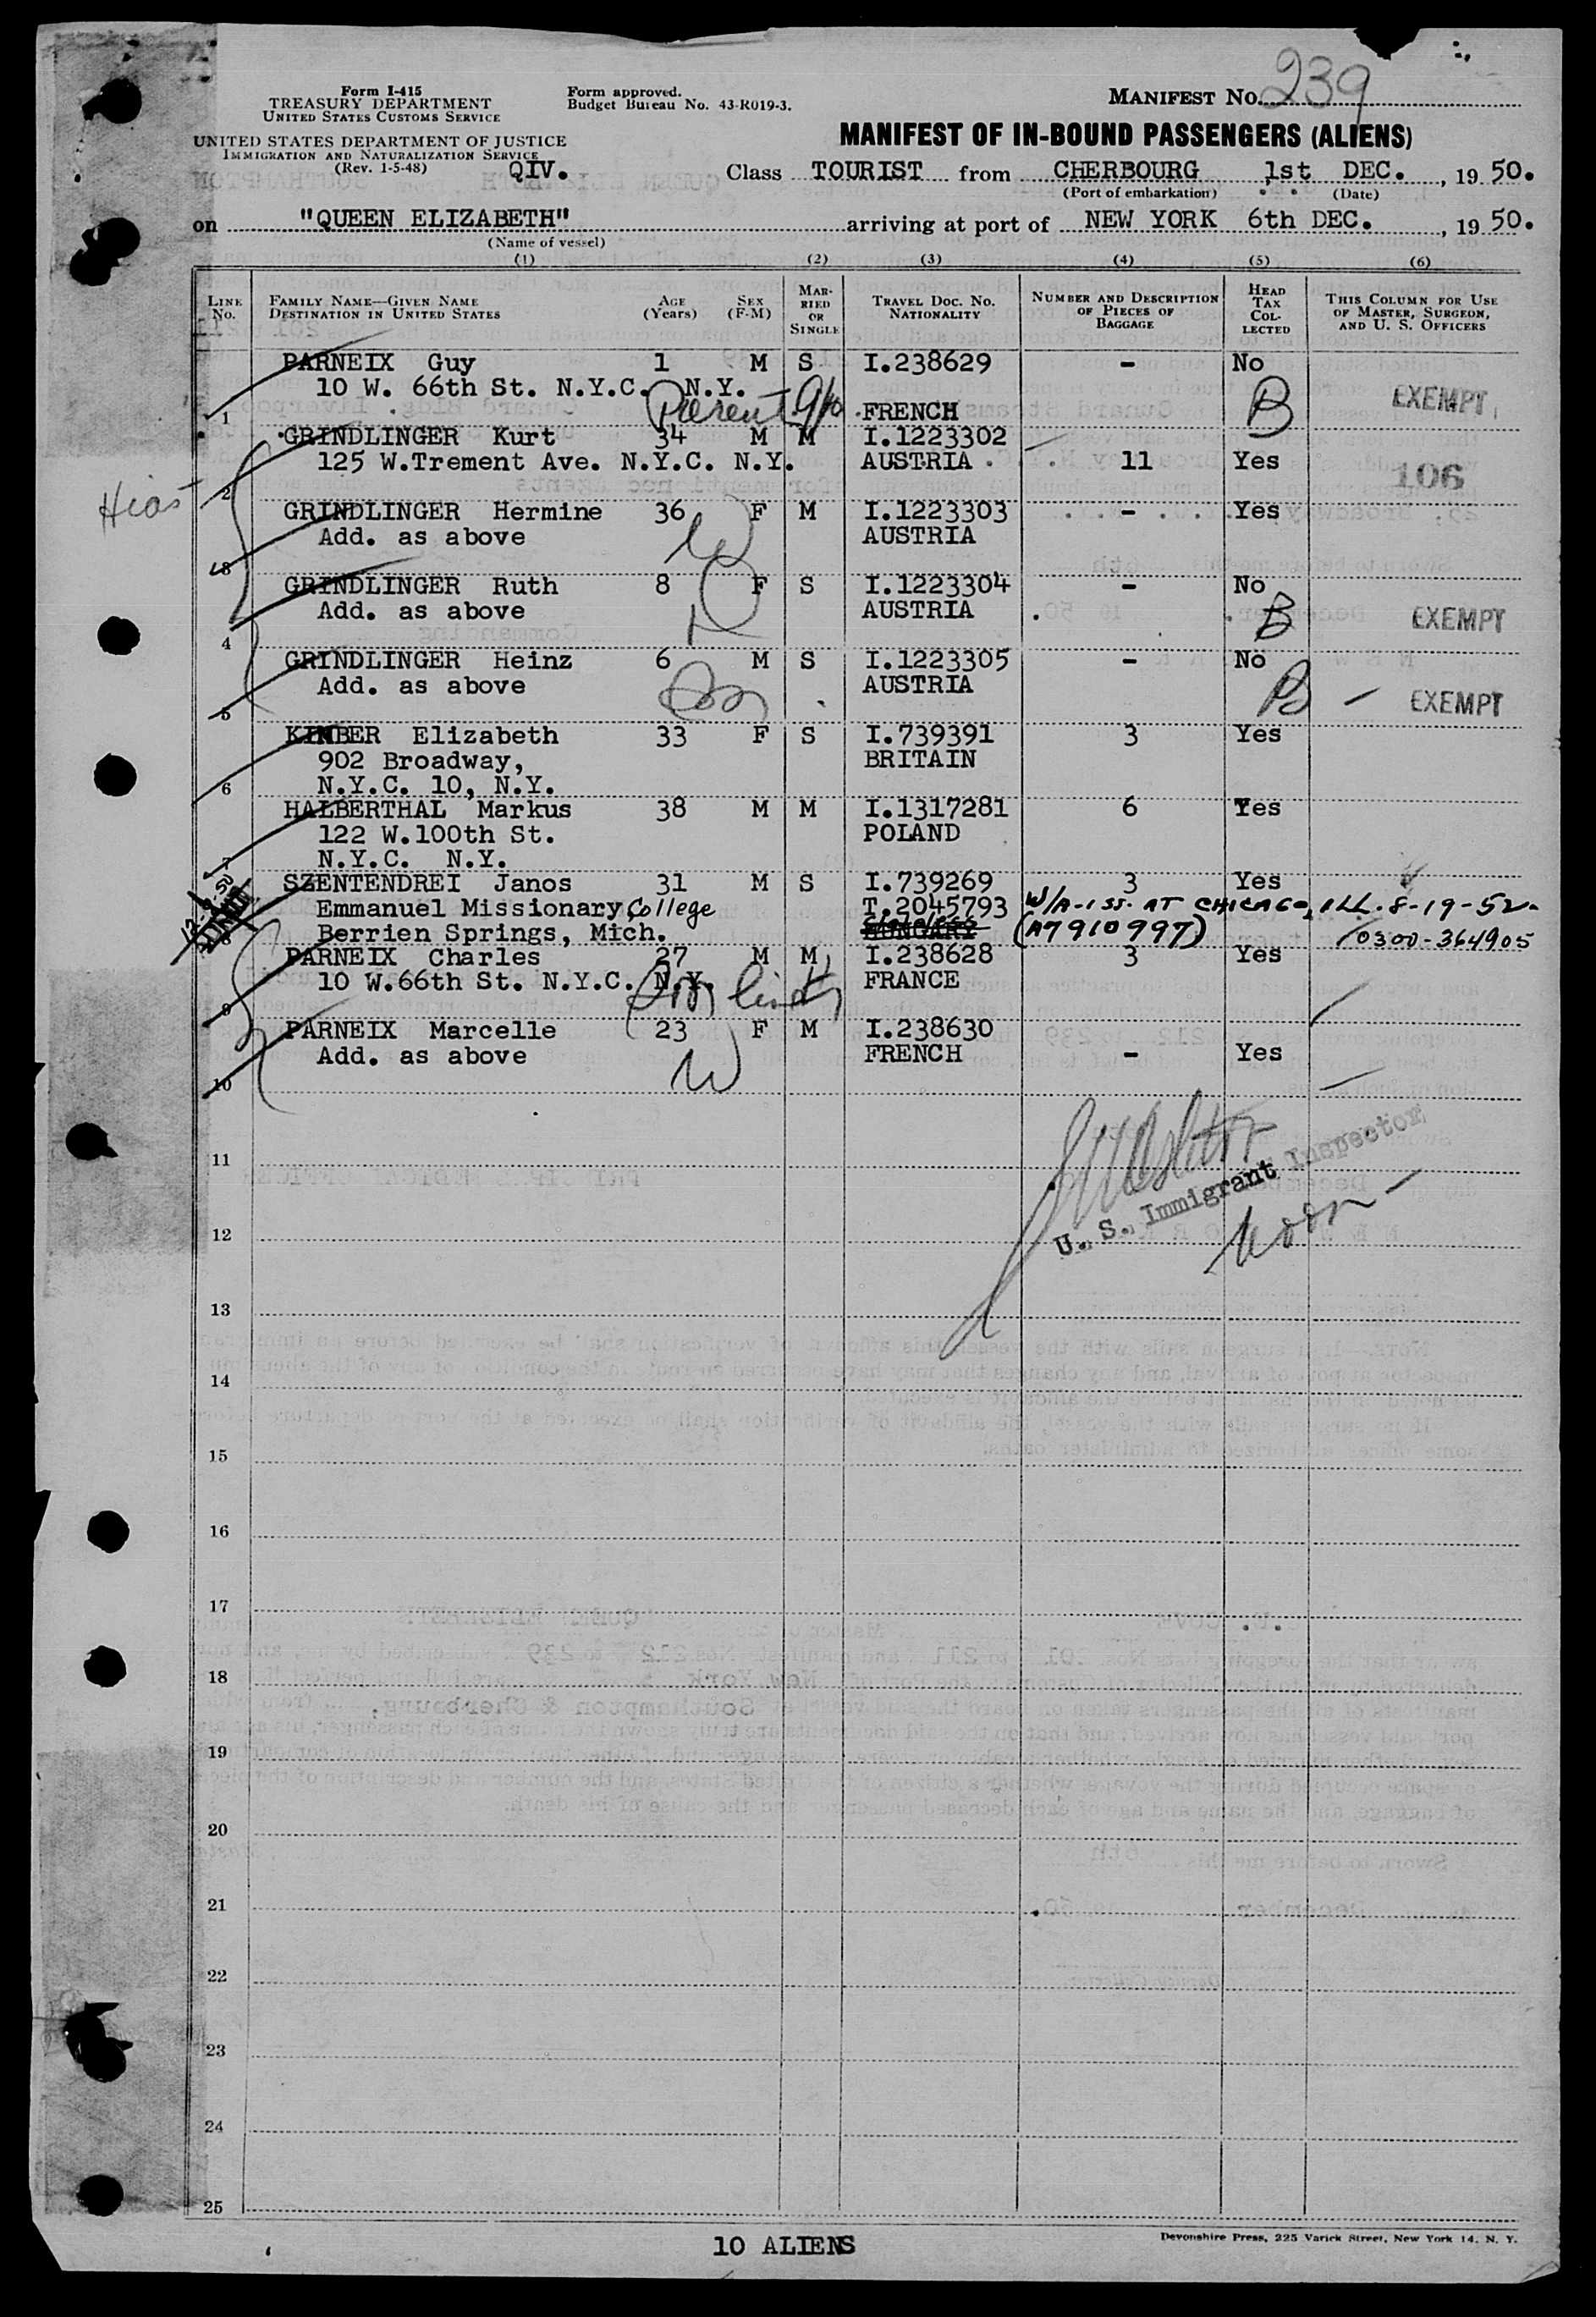 Form I-415
TREASURY DEPARTMENT
UNITED STATES CUSTOMS SERVICE
UNITED STATES DEPARTMENT OF JUSTICE
IMMIGRATION AND NATURALIZATION SERVICE
(Rev. 1-5-48) QIV.
Form approved.
Budget Bureau No. 43-R019-3.
MANIFEST No. 239
MANIFEST OF IN-BOUND PASSENGERS (ALIENS)
Class TOURIST from CHERBOURG 1st DEC., 19 50.
(Port of embarkation) (Date)
on "QUEEN ELIZABETH" arriving at port of NEW YORK 6th DEC. , 19 50.
(Name of vessel)
(1) (2) (3) (4) (5) (6)
LINE No. FAMILY NAME—GIVEN NAME DESTINATION IN UNITED STATES AGE (Years) SEX (F-M) MARRIED OR SINGLE TRAVEL DOC. No. NATIONALITY NUMBER AND DESCRIPTION OF PIECES OF BAGGAGE HEAD TAX COLLECTED THIS COLUMN FOR USE OF MASTER, SURGEON, AND U. S. OFFICERS
PARNEIX Guy 1 M S I.238629 - No
10 W. 66th St. N.Y.C. N.Y. B EXEMPT
1 Parent 9/10 FRENCH
GRINDLINGER Kurt 34 M M I.1223302
125 W.Trement Ave. N.Y.C. N.Y. AUSTRIA 11 Yes 106
2
Hias
GRINDLINGER Hermine 36 F M I.1223303 - Yes
Add. as above W AUSTRIA
3
GRINDLINGER Ruth 8 F S I.1223304 - No
Add. as above D AUSTRIA B EXEMPT
4
GRINDLINGER Heinz 6 M S I.1223305 - No
Add. as above Son AUSTRIA B - EXEMPT
5
KIMBER Elizabeth 33 F S I.739391 3 Yes
902 Broadway, BRITAIN
6 N.Y.C. 10, N.Y.
HALBERTHAL Markus 38 M M I.1317281 6 Yes
122 W.100th St. POLAND
7 N.Y.C. N.Y.
SZENTENDREI Janos 31 M S I.739269 3 Yes
Emmanuel Missionary College T.2045793 W/A-ISS. AT CHICAGO, ILL. 8-19-52-
8 Berrien Springs, Mich. Stateless HUNGARY (A7910997) 0300-364905
PARNEIX Charles 27 M M I.238628 3 Yes
10 W.66th St. N.Y.C. N.Y. FRANCE
9
PARNEIX Marcelle 23 F M I.238630
Add. as above W FRENCH - Yes
10
U. S. Immigrant Inspector
noon -
11
12
13
14
15
16
17
18
19
20
21
22
23
24
25
10 ALIENS
Devonshire Press, 225 Varick Street, New York 14, N. Y.